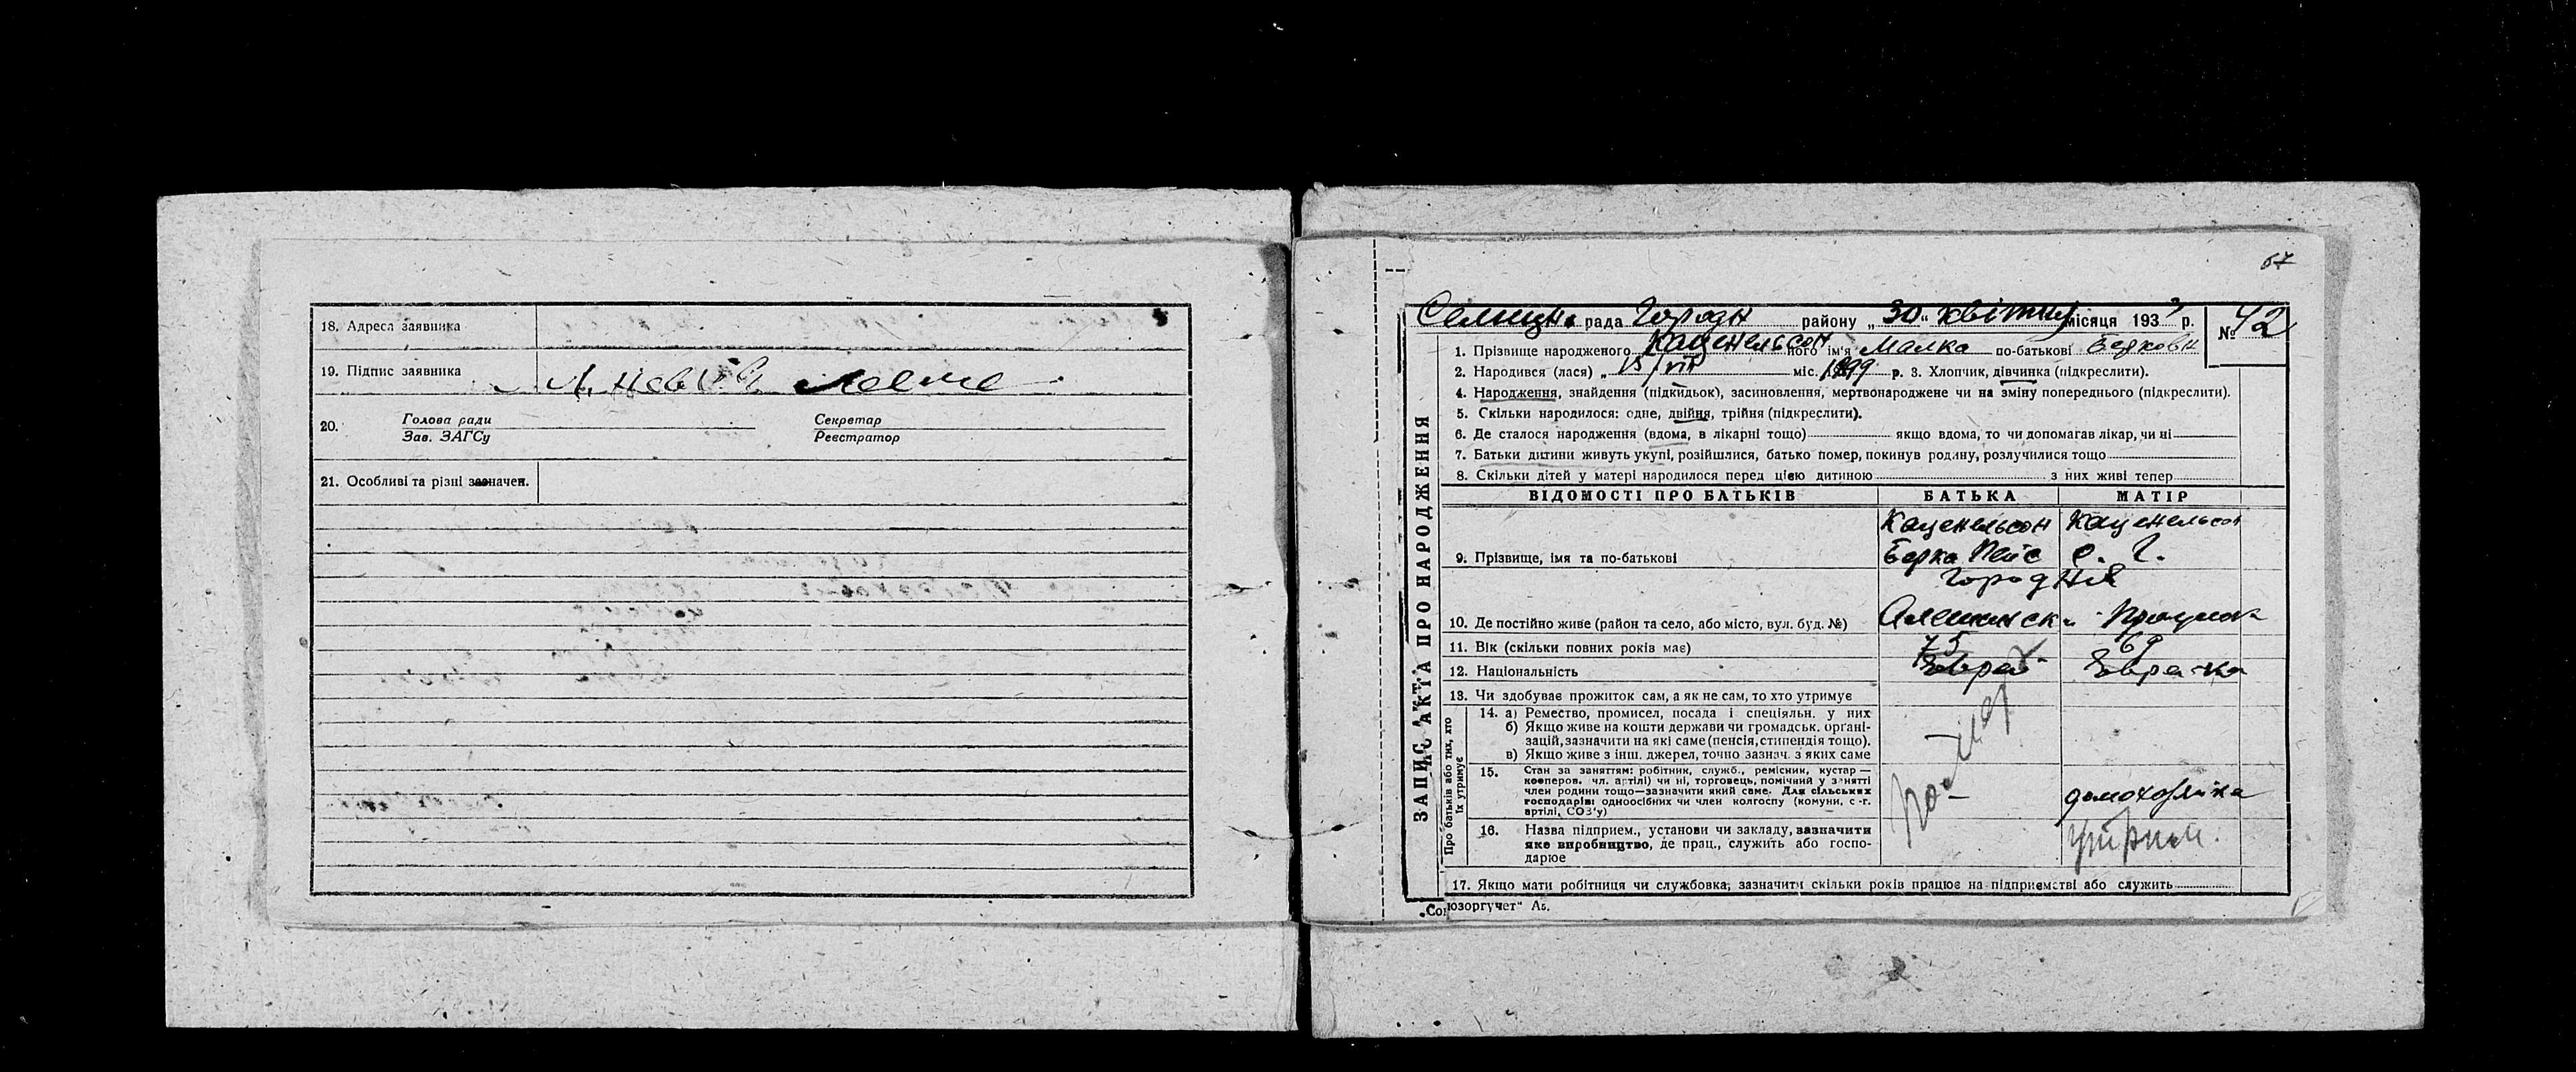 18. Адреса заявника
19. Підпис заявника
20. Голова ради Секретар
Зав. ЗАГСу Реєстратор
21. Особливі та різні зазначен.
67
Селищн. рада Городн району „30“ квітня місяця 1933 р. № 42
ЗАПИС АКТА ПРО НАРОДЖЕННЯ
1. Прізвище народженого Каценельсон його ім'я Малка по-батькові Берковн
2. Народився (лася) „ 15/VIII міс. 1899 р. 3. Хлопчик, дівчинка (підкреслити).
4. Народження, знайдення (підкидьок), засиновлення, мертвонароджене чи на зміну попереднього (підкреслити).
5. Скільки народилося: одне, двійня, трійня (підкреслити).
6. Де сталося народження (вдома, в лікарні тощо) якщо вдома, то чи допомагав лікар, чи ні
7. Батьки дитини живуть укупі, розійшлися, батько помер, покинув родину, розлучилися тощо
8. Скільки дітей у матері народилося перед цією дитиною з них живі тепер
ВІДОМОСТІ ПРО БАТЬКІВ БАТЬКА МАТІР
Каценельсон Каценельсон
9. Прізвище, імя та по-батькові Берка Пейс С. Г.
Городня
10. Де постійно живе (район та село, або місто, вул. буд. №)
11. Вік (скільки повних років має) 75 69
12. Національність Еврей Еврейка
13. Чи здобуває прожиток сам, а як не сам, то хто утримує
Про батьків або тих, хто їх утримує
14. а) Ремество, промисел, посада і спеціяльн. у них
б) Якщо живе на кошти держави чи громадськ. органі-
зацій, зазначити на які саме (пенсія, стипендія тощо).
в) Якщо живе з інш. джерел, точно зазнач. з яких саме
15. Стан за заняттям: робітник, служб., ремісник, кустар —
кооперов. чл. артілі) чи ні, торговець, помічний у занятті
член родини тощо—зазначити який саме. Для сільських
господарів: одноосібних чи член колгоспу (комуни, с-г.
артілі, СОЗ'у)
домохозяйка
16. Назва підприєм., установи чи закладу, зазначити
яке виробництво, де прац., служить або госпо-
дарює
утрим.
17. Якщо мати робітниця чи службовка, зазначити скільки років працює на підприємстві або служить
„Союзоргучет“